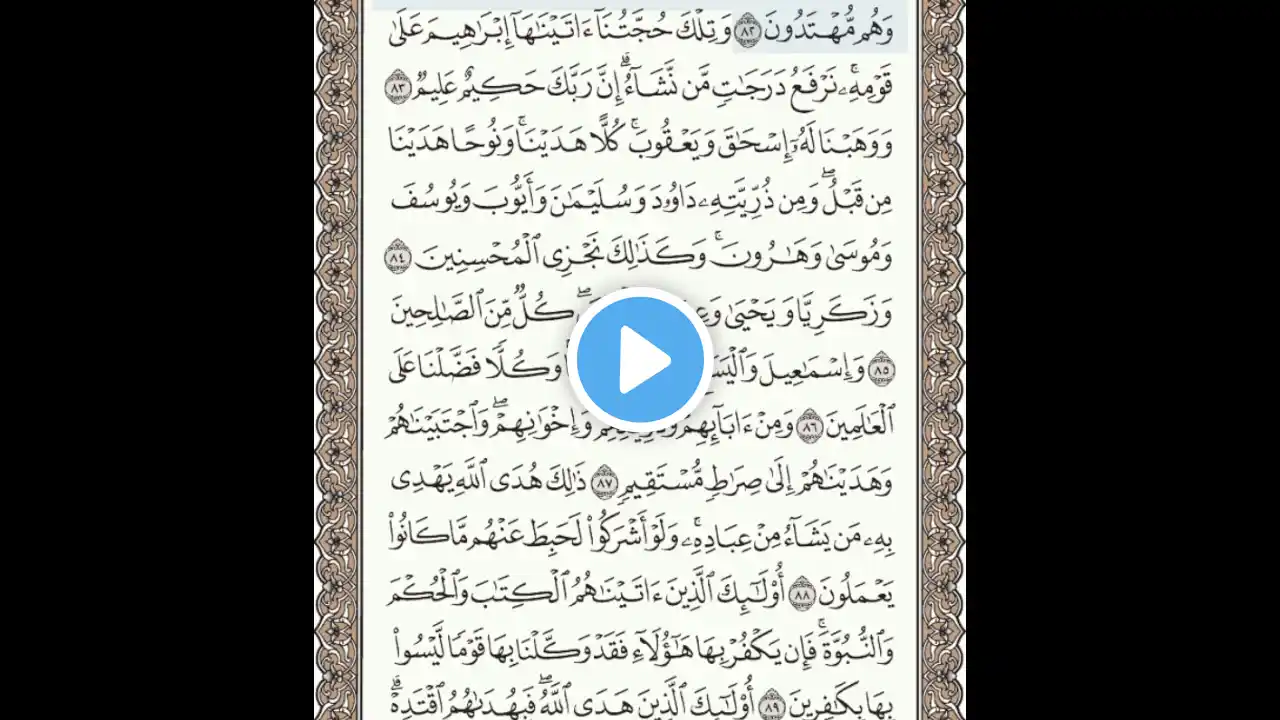 وَهُم مُّهْتَدُونَ ٨٢ وَتِلْكَ حُجَّتُنَآ ءَاتَيْنَٰهَآ إِبْرَٰهِيمَ عَلَىٰ
قَوْمِهِۦۚ نَرْفَعُ دَرَجَٰتٍ مَّن نَّشَآءُۗ إِنَّ رَبَّكَ حَكِيمٌ عَلِيمٌ ٨٣
وَوَهَبْنَا لَهُۥٓ إِسْحَٰقَ وَيَعْقُوبَۚ كُلًّا هَدَيْنَاۚ وَنُوحًا هَدَيْنَا
مِن قَبْلُۖ وَمِن ذُرِّيَّتِهِۦ دَاوُۥدَ وَسُلَيْمَٰنَ وَأَيُّوبَ وَيُوسُفَ
وَمُوسَىٰ وَهَٰرُونَۚ وَكَذَٰلِكَ نَجْزِى ٱلْمُحْسِنِينَ ٨٤
وَزَكَرِيَّا وَيَحْيَىٰ كُلٌّ مِّنَ ٱلصَّٰلِحِينَ
٨٥ وَإِسْمَٰعِيلَ وَكُلًّا فَضَّلْنَا عَلَى
ٱلْعَٰلَمِينَ ٨٦ وَمِنْ ءَابَآئِهِمْ وَإِخْوَٰنِهِمْۖ وَٱجْتَبَيْنَٰهُمْ
وَهَدَيْنَٰهُمْ إِلَىٰ صِرَٰطٍ مُّسْتَقِيمٍ ٨٧ ذَٰلِكَ هُدَى ٱللَّهِ يَهْدِى
بِهِۦ مَن يَشَآءُ مِنْ عِبَادِهِۦۚ وَلَوْ أَشْرَكُوا۟ لَحَبِطَ عَنْهُم مَّا كَانُوا۟
يَعْمَلُونَ ٨٨ أُو۟لَٰٓئِكَ ٱلَّذِينَ ءَاتَيْنَٰهُمُ ٱلْكِتَٰبَ وَٱلْحُكْمَ
وَٱلنُّبُوَّةَۚ فَإِن يَكْفُرْ بِهَا هَٰٓؤُلَآءِ فَقَدْ وَكَّلْنَا بِهَا قَوْمًا لَّيْسُوا۟
بِهَا بِكَٰفِرِينَ ٨٩ أُو۟لَٰٓئِكَ ٱلَّذِينَ هَدَى ٱللَّهُۖ فَبِهُدَىٰهُمُ ٱقْتَدِهْۗ